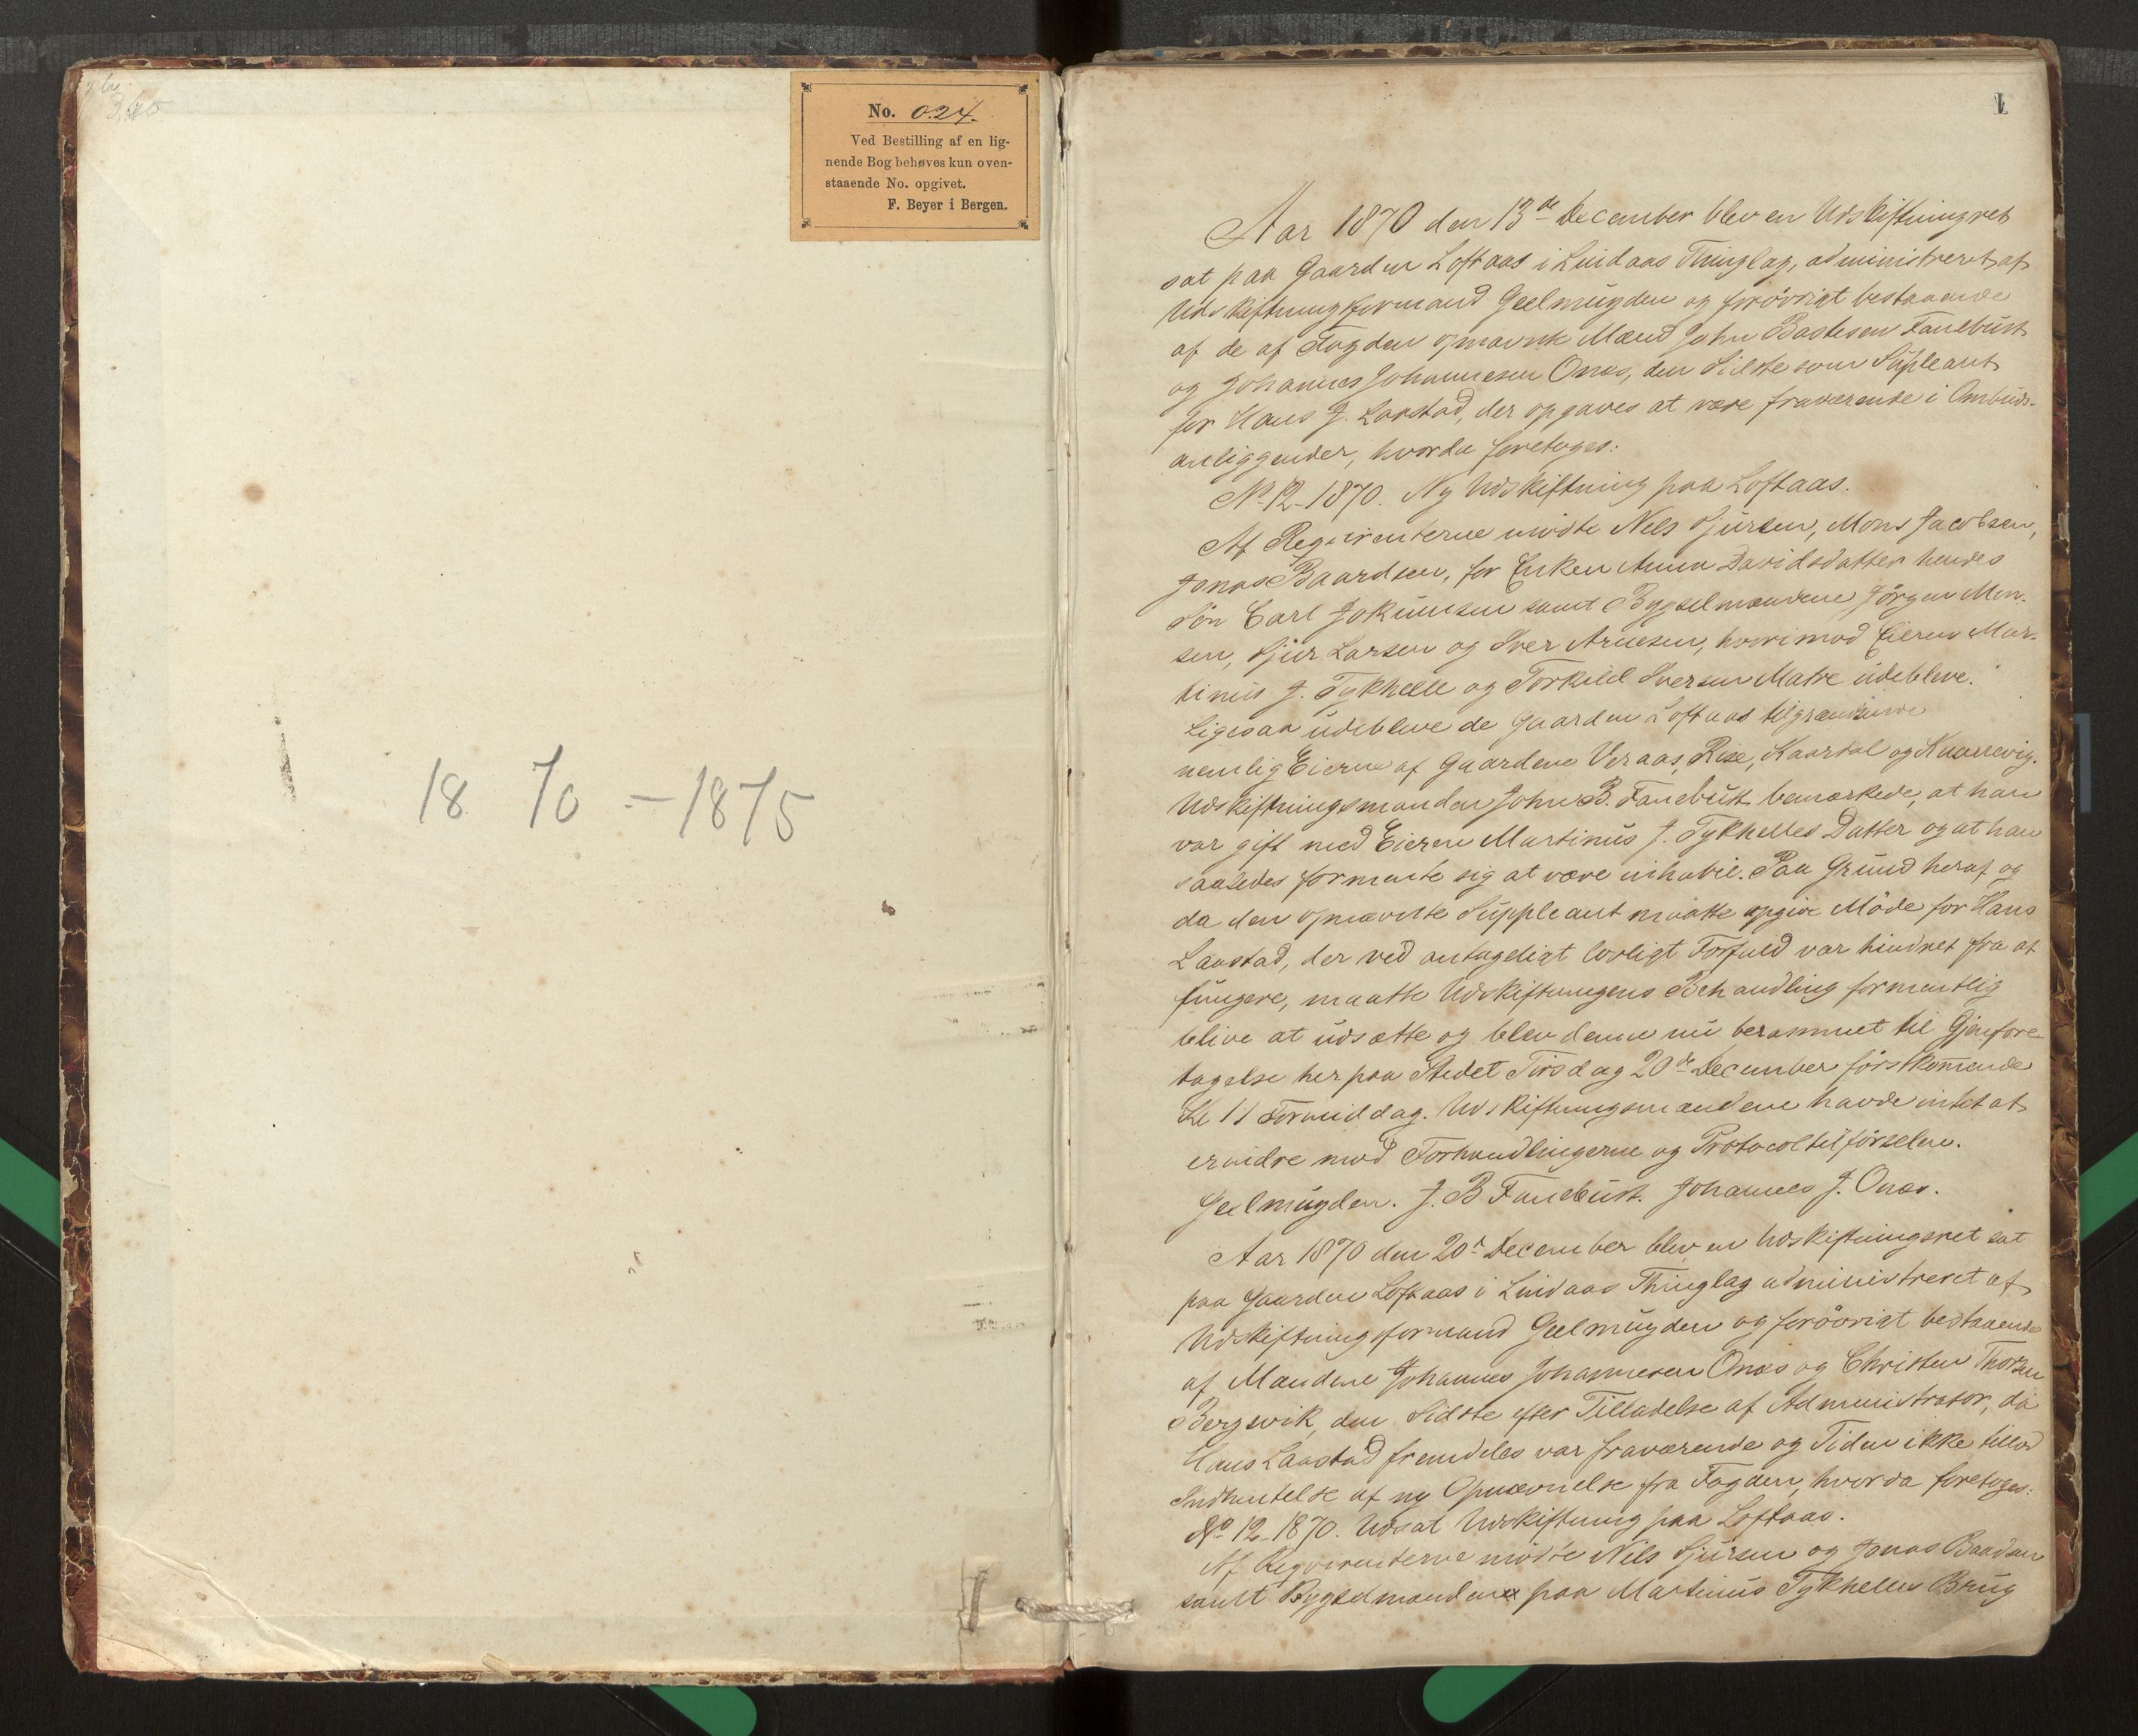 No. 024.
Ved Bestilling af en lig-
nende Bog behøves kun oven-
staaende No. opgivet.
F. Beyer i Bergen.
18 70 - 1875
1
Aar 1870 den 13de December blev en Udskiftningsret
sat paa Gaarden Loftaas i Lindaas Thinglag, administreret af
Udskiftningsformand Geelmuyden og forøvrigt bestaaende
af de af Fogden opnævnte Mænd John Bastesen Fanebust
og Johannes Johannesen Onæs, den Sidste som Supleant
for Hans J. Laastad, der opgaves at være fraværende i Ombuds-
anliggender, hvorda foretoges:
No 12-1870. Ny Udskiftning paa Loftaas.
Af Reqvirenterne mødte Nels Sjursen, Mons Jacobsen,
Jonas Baardsen, for Enken Anna Davidsdatter hendes
Søn Carl Jokumsen samt Bygselmændene Jørgen Mon-
sen, Sjur Larsen og Iver Arnesen, hvorimod Eieren Mar-
tinus J. Tykhelle og Torkild Iversen Matre udebleve.
Ligesaa udebleve de Gaarden Loftaas tilgrændsende
nemlig Eierne af Gaardene Veraas, Rise, Kaardal og Knarrevig.
Udskiftningsmanden John B. Fanebust bemærkede, at han
var gift med Eieren Martinus J. Tykhelles Datter og at han
saaledes formente sig at være inhabil. Paa Grund heraf og
da den opnævnte Suppleant maatte opgive Møde for Hans
Laastad, der ved antageligt lovligt Forfald var hindret fra at
fungere, maatte Udskiftningens Behandling formentlig
blive at udsætte og blev denne nu berammet til Gjenfore-
tagelse her paa Stedet Tirsdag 20de December førstkommende
Kl 11 Formiddag. Udskiftningsmændene havde intet at
erindre mod Forhandlingerne og Protocoltilførselen.
Geelmuyden. J. B Fanebust. Johannes J. Onæs.
Aar 1870 den 20de December blev en Udskiftningsret sat
paa Gaarden Loftaas i Lindaas Thinglag administreret af
Udskiftningsformand Geelmuyden og forøvrigt bestaaende
af Mændene Johannes Johannesen Onæs og Christen Thorsen
Bergsvik, den Sidste efter Tilladelse af Administrator, da
Hans Laastad fremdeles var fraværende og Tiden ikke tillod
Indhentelse af ny Opnævnelse fra Fogden, hvorda foretoges:
No 12-1870. Udsat Udskiftning paa Loftaas.
Af Reqvirenterne mødte Nils Sjursen og Jonas Baadsen
samt Bygselmændene paa Martinus Tykhelles Brug